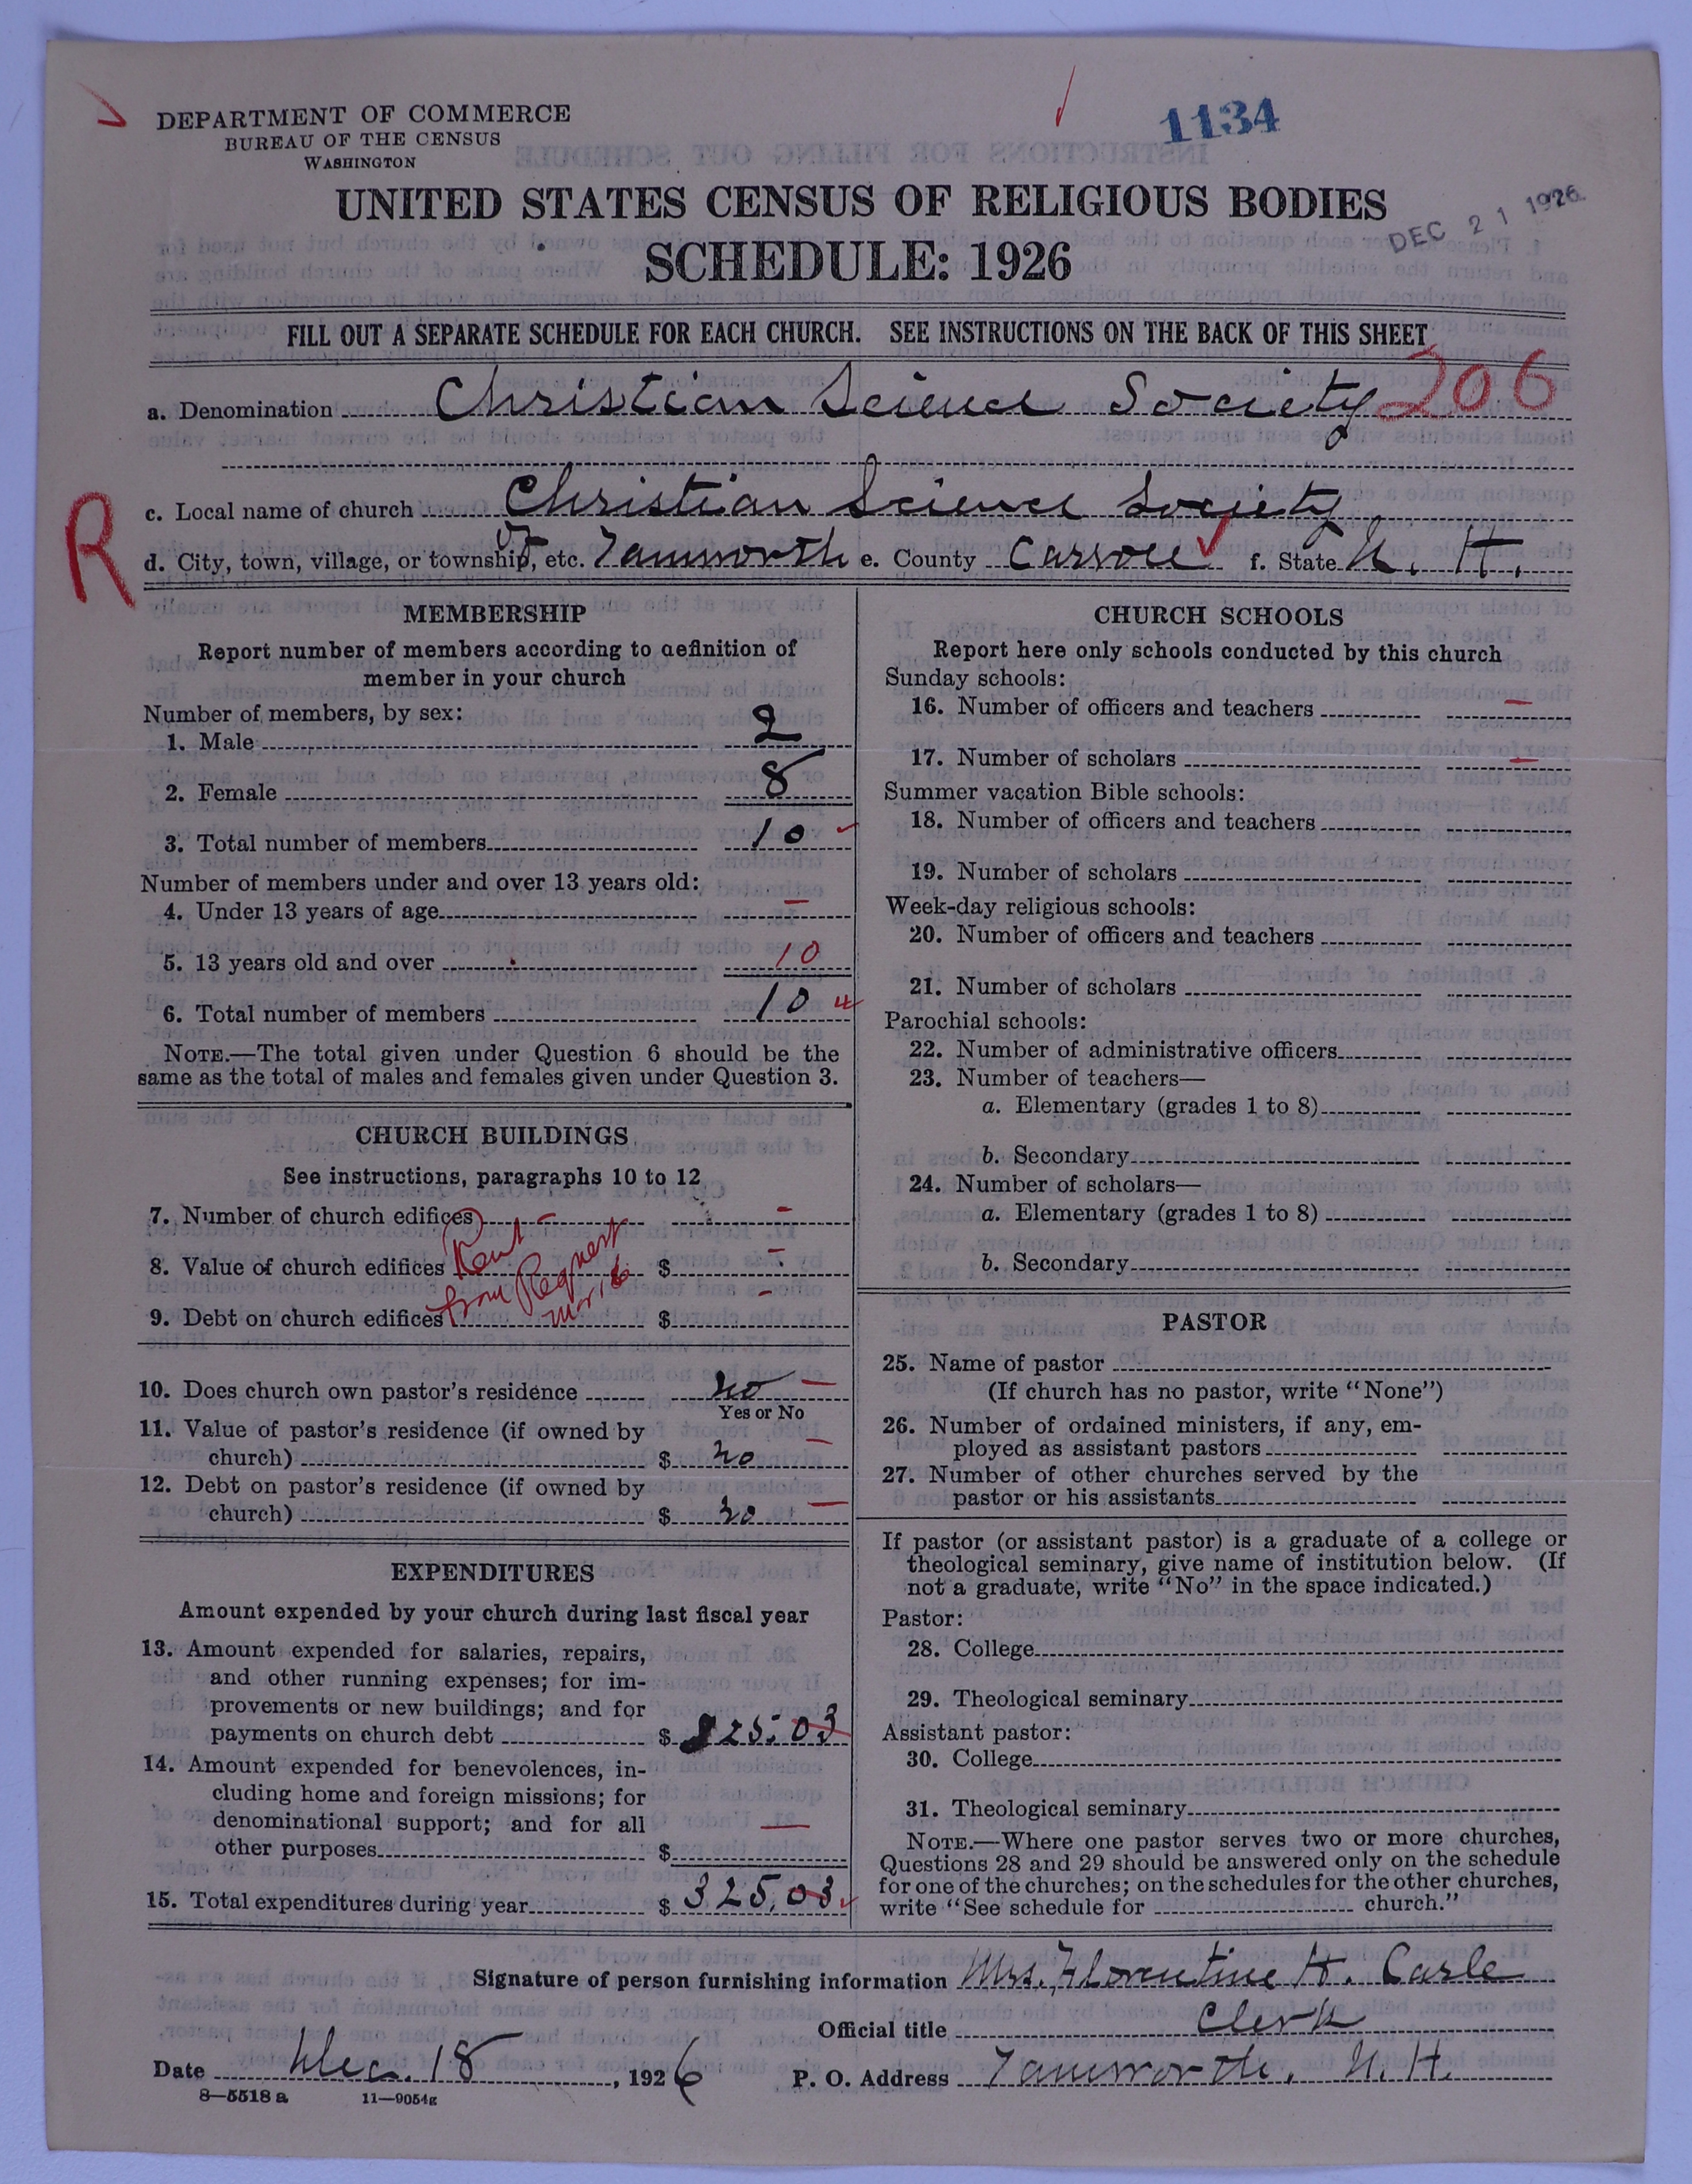 DEPARTMENT OF COMMERCE
BUREAU OF THE CENSUS
WASHINGTON
1134
UNITED STATES CENSUS OF RELIGIOUS BODIES
SCHEDULE: 1926
DEC 21 1926
FILL OUT A SEPARATE SCHEDULE FOR EACH CHURCH. SEE INSTRUCTIONS ON THE BACK OF THIS SHEET
a. Denomination Christian Science Society 206
c. Local name of church Christian Science Society
R
d. City, town, village, or township, etc. of Tamworth e. County Carroll f. State N. H.
MEMBERSHIP
Report number of members according to definition of
member in your church
Number of members, by sex:
1. Male 2
2. Female 8
3. Total number of members 10
Number of members under and over 13 years old:
4. Under 13 years of age –
5. 13 years old and over 10
6. Total number of members 10
NOTE.—The total given under Question 6 should be the
same as the total of males and females given under Question 3.
CHURCH BUILDINGS
See instructions, paragraphs 10 to 12
7. Number of church edifices – –
8. Value of church edifices Rent $ –
9. Debt on church edifices from Request $ –
10. Does church own pastor's residence no –
Yes or No
11. Value of pastor's residence (if owned by
church) $ no –
12. Debt on pastor's residence (if owned by
church) $ no –
EXPENDITURES
Amount expended by your church during last fiscal year
13. Amount expended for salaries, repairs,
and other running expenses; for im-
provements or new buildings; and for
payments on church debt $ 325.03
14. Amount expended for benevolences, in-
cluding home and foreign missions; for
denominational support; and for all
other purposes $ –
15. Total expenditures during year $ 325.03
CHURCH SCHOOLS
Report here only schools conducted by this church
Sunday schools:
16. Number of officers and teachers –
17. Number of scholars –
Summer vacation Bible schools:
18. Number of officers and teachers
19. Number of scholars
Week-day religious schools:
20. Number of officers and teachers
21. Number of scholars
Parochial schools:
22. Number of administrative officers
23. Number of teachers—
a. Elementary (grades 1 to 8)
b. Secondary
24. Number of scholars—
a. Elementary (grades 1 to 8)
b. Secondary
PASTOR
25. Name of pastor
(If church has no pastor, write "None")
26. Number of ordained ministers, if any, em-
ployed as assistant pastors
27. Number of other churches served by the
pastor or his assistants
If pastor (or assistant pastor) is a graduate of a college or
theological seminary, give name of institution below. (If
not a graduate, write "No" in the space indicated.)
Pastor:
28. College
29. Theological seminary
Assistant pastor:
30. College
31. Theological seminary
NOTE.—Where one pastor serves two or more churches,
Questions 28 and 29 should be answered only on the schedule
for one of the churches; on the schedules for the other churches,
write "See schedule for church."
Signature of person furnishing information Mrs. Florentine H. Carle
Official title Clerk
Date Dec. 18, 1926 P. O. Address Tamworth, N. H.
8—5518 a 11—9054g